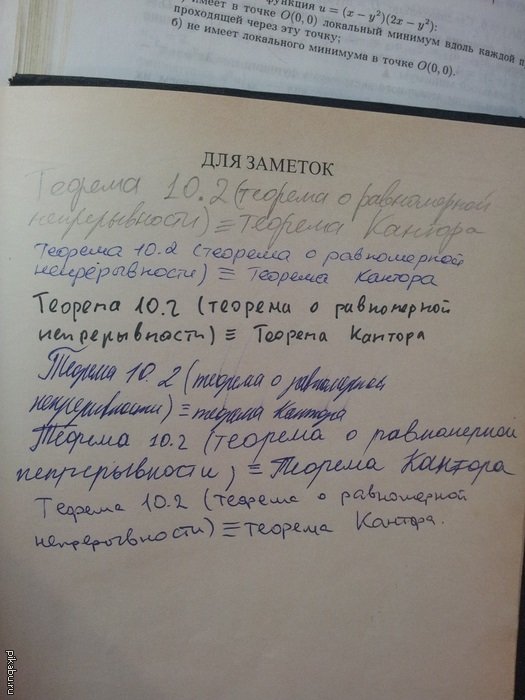 функция u = (x − y²)(2x − y²):
имеет в точке O(0,0) локальный минимум вдоль каждой п
проходящей через эту точку;
б) не имеет локального минимума в точке O(0,0).
ДЛЯ ЗАМЕТОК
Теорема 10.2 (теорема о равномерной
непрерывности) ≡ Теорема Кантора
Теорема 10.2 (теорема о равномерной
непрерывности) ≡ Теорема Кантора
Теорема 10.2 (теорема о равномерной
непрерывности) ≡ Теорема Кантора
Теорема 10.2 (теорема о равномерной
непрерывности) ≡ теорема Кантора
Теорема 10.2 (теорема о равномерной
непрерывности) ≡ Теорема Кантора
Теорема 10.2 (теорема о равномерной
непрерывности) ≡ теорема Кантора.
pikabu.ru